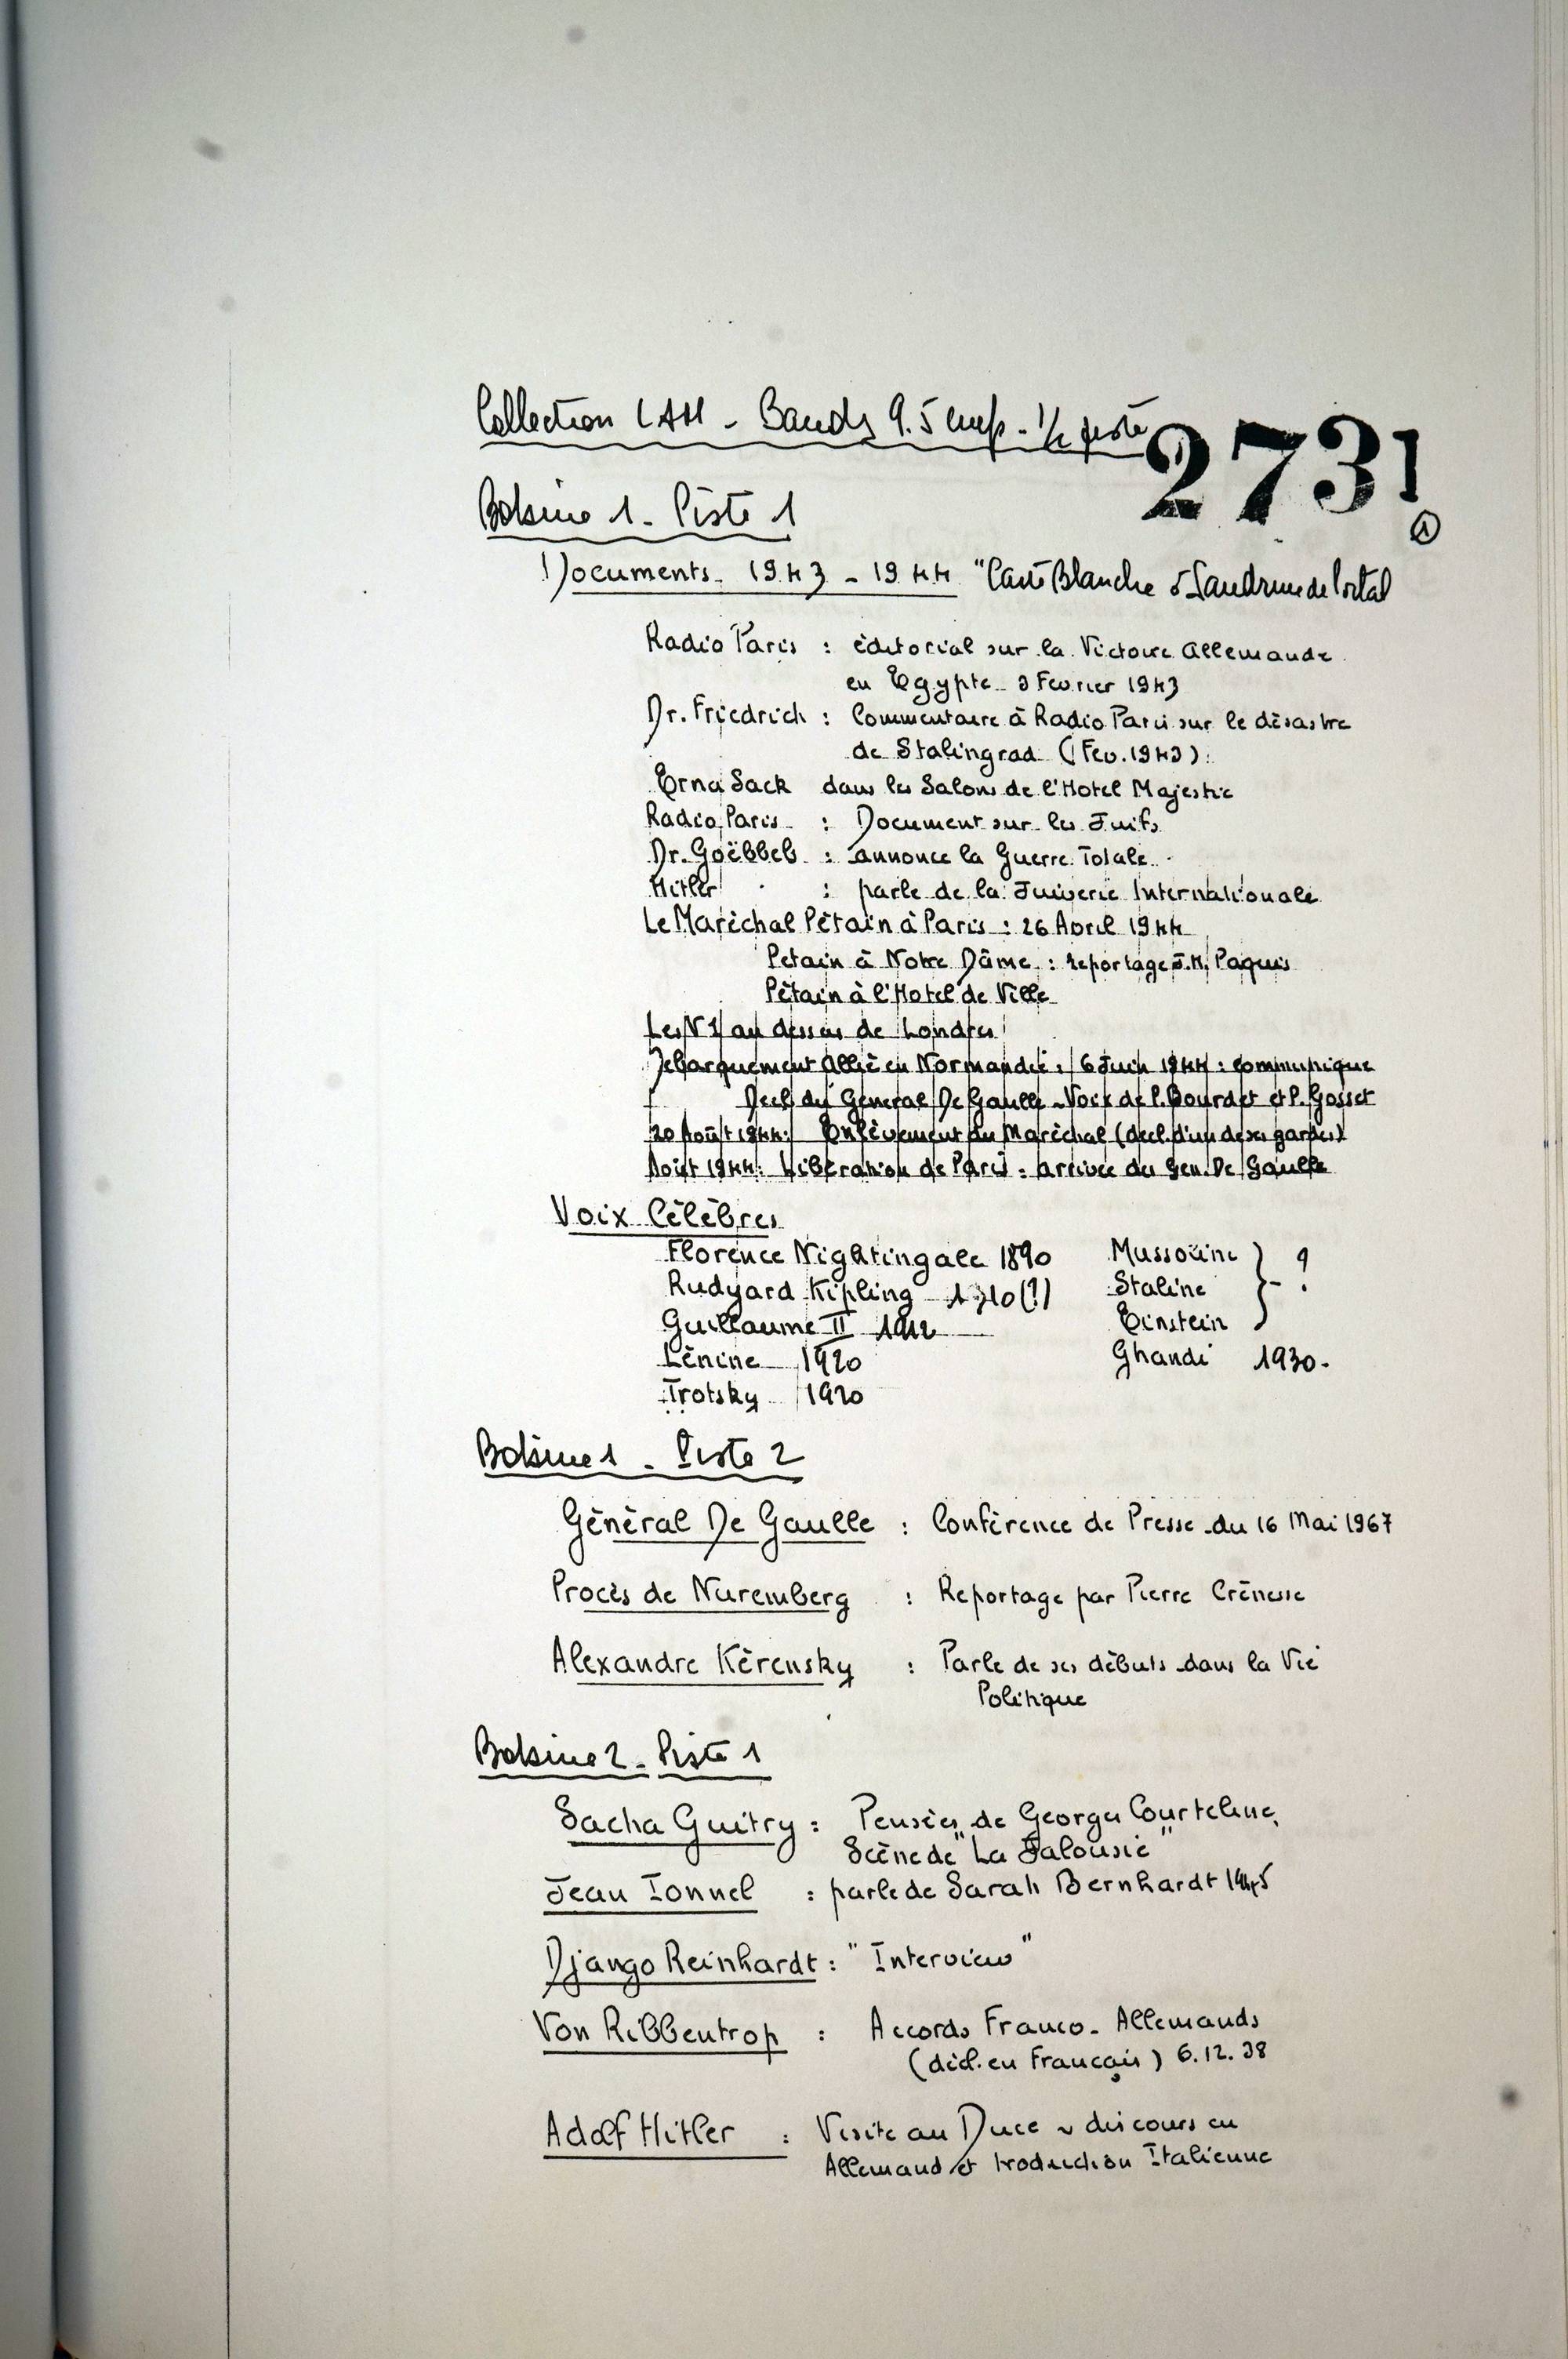 Collection LAM - Bandes 9.5 cm/s - 1/2 piste
2731
①
Bobine 1 - Piste 1
Documents - 1943 - 1944 "Carte Blanche à
Radio Paris : éditorial sur la Victoire Allemande
en Egypte - 3 Février 1943
Dr. Friedrich : Commentaire à Radio Paris sur le désastre
de Stalingrad (Fev. 1943).
Erna Sack dans les Salons de l'Hotel Majestic
Radio Paris : Document sur les Juifs
Dr. Goëbbels : annonce la Guerre Totale.
Hitler : parle de la Juiverie Internationale
Le Maréchal Pétain à Paris : 26 Avril 1944
Petain à Notre Dâme : reportage J.H. Paquis
Pétain à l'Hotel de Ville
Les V1 au dessus de Londres
Debarquement Allié en Normandie : 6 Juin 1944 : communique
Decl. du Général De Gaulle - Voix de P. Bourdet et P. Gosset
20 Août 1944 : Enlèvement du Maréchal (decl. d'un de ses gardes)
Août 1944 : Libération de Paris : arrivée du Gen. De Gaulle
Voix Célèbres
Florence Nightingale 1890 Mussolini } - ?
Rudyard Kipling 1910 (?) Staline
Guillaume II 1912 Einstein
Lénine 1920 Ghandi 1930.
Trotsky 1920
Bobine 1 - Piste 2
Général De Gaulle : Conférence de Presse du 16 Mai 1967
Procès de Nuremberg : Reportage par Pierre Crénesse
Alexandre Kérensky : Parle de ses débuts dans la Vie
Politique
Bobine 2 - Piste 1
Sacha Guitry : Pensées de Georges Courteline,
Scène de "La Jalousie"
Jean Ionnel : parle de Sarah Bernhardt 1945
Django Reinhardt : "Interview"
Von Ribbentrop : Accords Franco-Allemands
(décl. en Français) 6.12.38
Adolf Hitler : Visite au Duce ~ discours en
Allemand et traduction Italienne